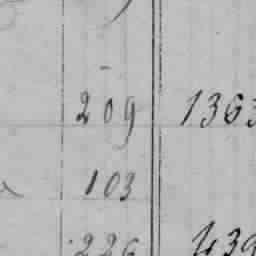 209 1363
103
226 439